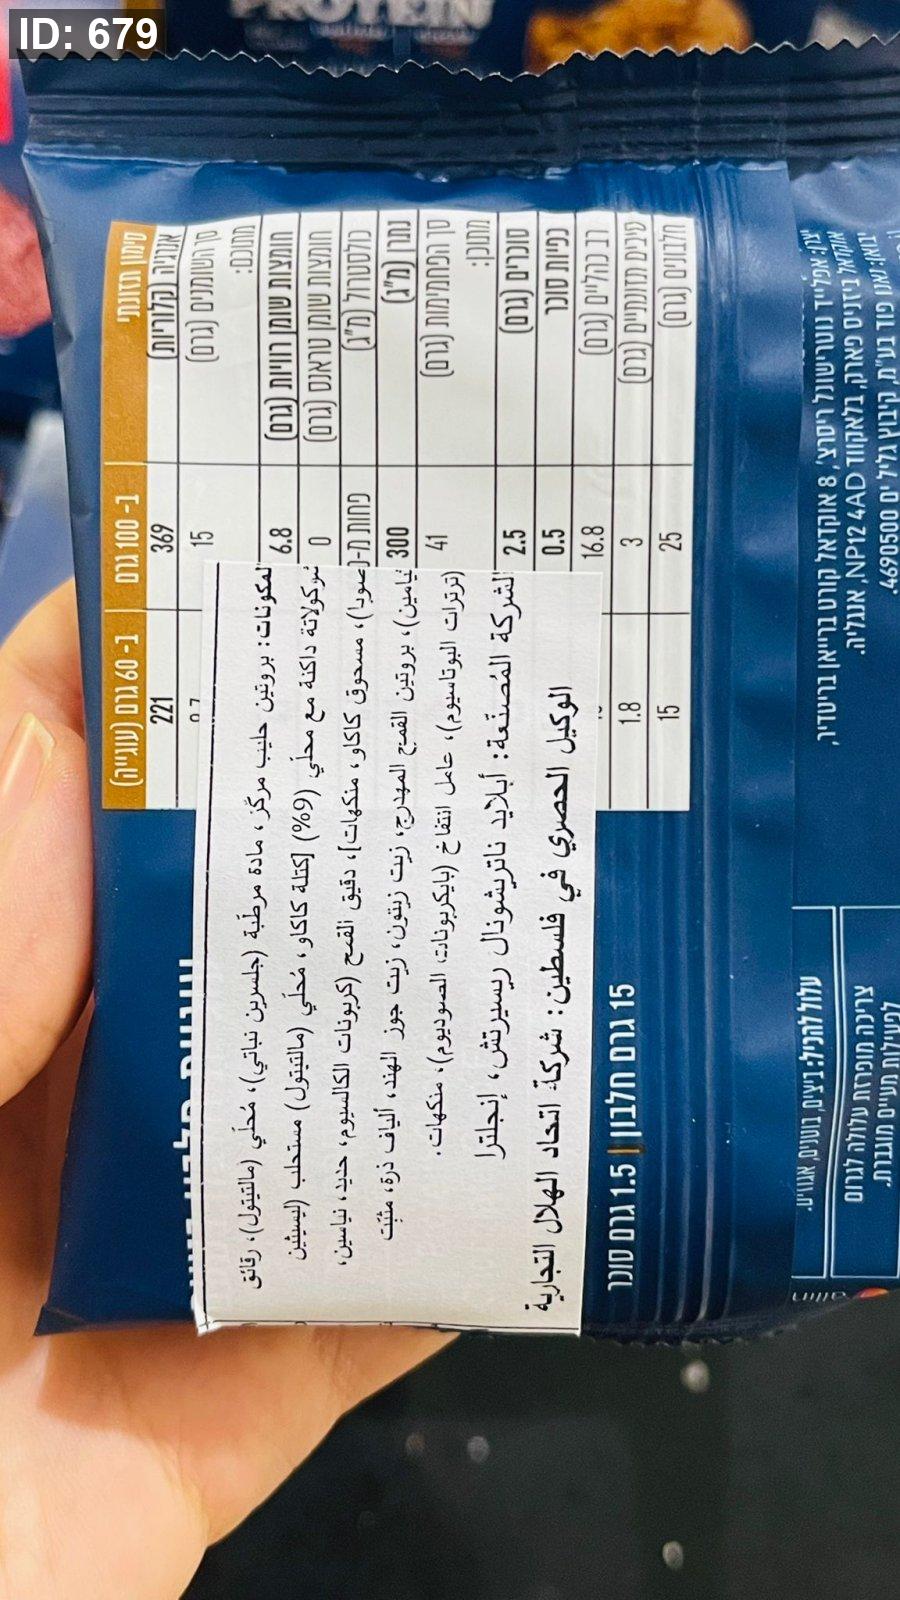 ID: 679
PROTEIN
סימון תזונתי
ב- 100 גרם
ב- 60 גרם (עוגייה)
אנרגיה (קלוריות) 369 221
סך השומנים (גרם) 15
מתוכם:
חומצות שומן רוויות (גרם) 6.8
חומצות שומן טראנס (גרם) 0
כולסטרול (מ"ג) פחות מ-
נתרן (מ"ג) 300
סך הפחמימות (גרם) 41
מתוכן:
סוכרים (גרם) 2.5
כפיות סוכר 0.5
רב כהליים (גרם) 16.8
סיבים תזונתיים (גרם) 3 1.8
חלבונים (גרם) 25 15
المكونات: بروتين حليب مركّز، مادة مرطّبة (جلسرين نباتي)، مُحلّي (مالتيتول)، رقائق
شوكولاتة داكنة مع محلّي (9%) [كتلة كاكاو، مُحلّي (مالتيتول) مستحلب (ليسيثين
صويا)، مسحوق كاكاو، منكهات]، دقيق القمح (كربونات الكالسيوم، حديد، نياسين،
ثيامين)، بروتين القمح المهدرج، زيت زيتون، زيت جوز الهند، ألياف ذرة، مثبّت
(ترترات البوتاسيوم)، عامل انتفاخ (بايكربونات الصوديوم)، منكهات.
الشركة المُصنّعة: أبلايد ناتريشونال ريسيرتش، إنجلترا
الوكيل الحصري في فلسطين: شركة اتحاد الهلال التجارية
15 גרם חלבון | 1.5 גרם סוכר
יצרן: אפלייד נוטרישונל ריסרצ', 8 אוקדאל קורט בריאן בריסדיר,
אוקדאל ביזניס פארק, בלאקווד NP12 4AD, אנגליה.
פוד בע"מ, קיבוץ גליל ים 4690500.
עלול להכיל: ביצים, בוטנים, אגוזים.
צריכה מופרזת עלולה לגרום
לפעילות מעיים מוגברת.